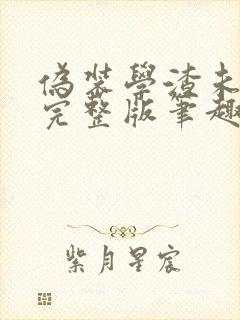 偽装學渣未
完整版筆趣
紫月星宸